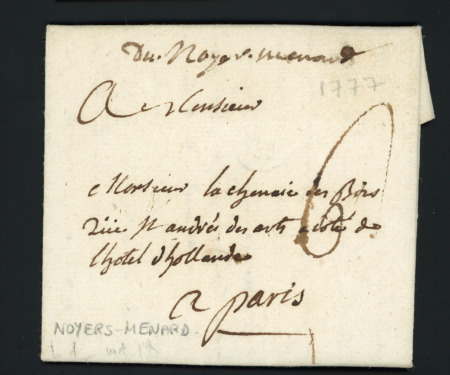 Du Noyer-menard
1777
A Monsieur
Monsieur la chenaie des Bois
Rüe St andrée des arts a coté de
6
l'hotel d'hollande
a paris
NOYERS-MENARD.